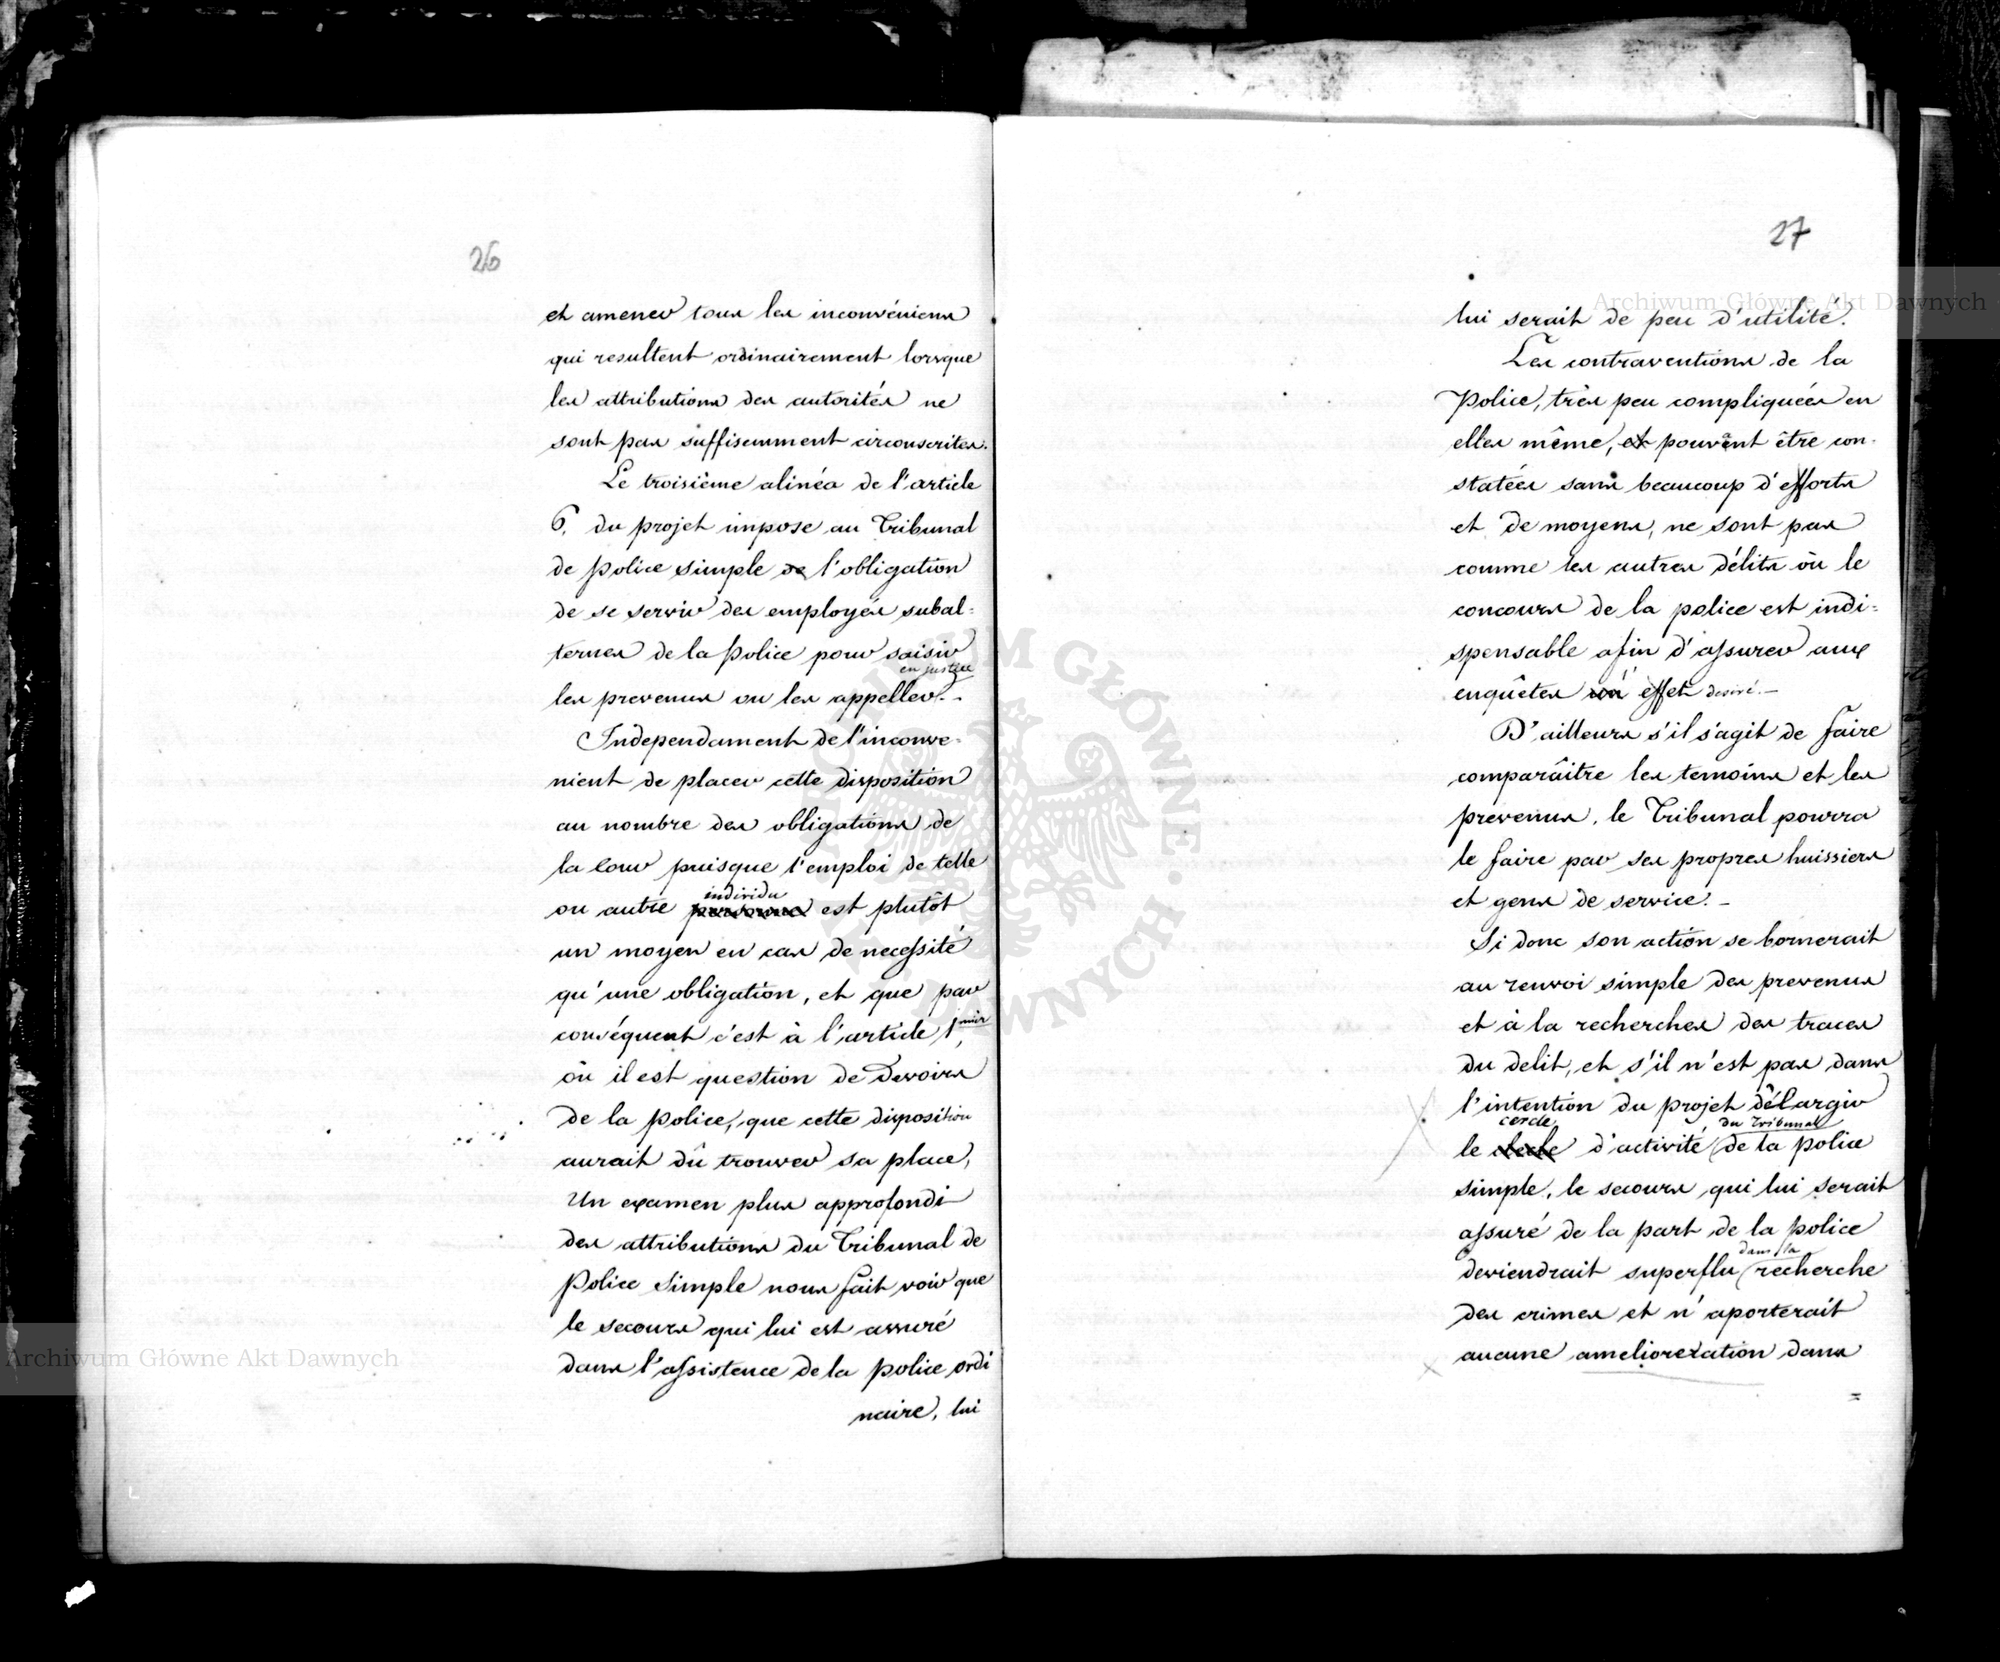 26
et amener tous les inconvéniens
qui resultent ordinairement lorsque
les attributions des autorités ne
sont pas suffisemment circonscrites.
Le troisième alinéa de l'article
6, du projet impose au Tribunal
de police simple de l'obligation
de se servir des employés subal=
ternes de la police pour saisir
en justice
les prevenus ou les appeller. -
Independament de l'inconve-
nient de placer cette disposition
au nombre des obligations de
la Cour puisque l'emploi de telle
individu
ou autre personne est plutôt
un moyen en cas de necessité
qu'une obligation, et que par
conséquent c'est à l'article 1mier,
où il est question de Devoirs
de la police, que cette disposition
aurait dû trouver sa place,
Un examen plus approfondi
des attributions du Tribunal de
Police Simple nous fait voir que
le secours qui lui est assuré
dans l'assistence de la police ordi
naire, lui
27
lui serait de peu d'utilité.
Les contraventions de la
Police, très peu compliquées en
elles même, et pouvant être con-
statées sans beaucoup d'efforts
et de moyens, ne sont pas
comme les autres délits où le
concours de la police est indi=
spensable afin d'assurer aux
enquêtes un effet desiré. -
D'ailleurs s'il s'agit de faire
comparâitre les temoins et les
prevenus, le Tribunal pourra
le faire par ses propres huissiers
et gens de service. -
Si donc son action se bornerait
au renvoi simple des prevenus
et à la recherches des traces
du delit, et s'il n'est pas dans
l'intention du projet d'élargir
cercle du Tribunal
le d'activité de la police
simple, le secours qui lui serait
assuré de la part de la police
dans la
deviendrait superflu recherche
des crimes et n'aporterait
aucune ameliorezation dans
=
Archiwum Główne Akt Dawnych
Archiwum Główne Akt Dawnych
ARCHIWUM GŁÓWNE AKT DAWNYCH